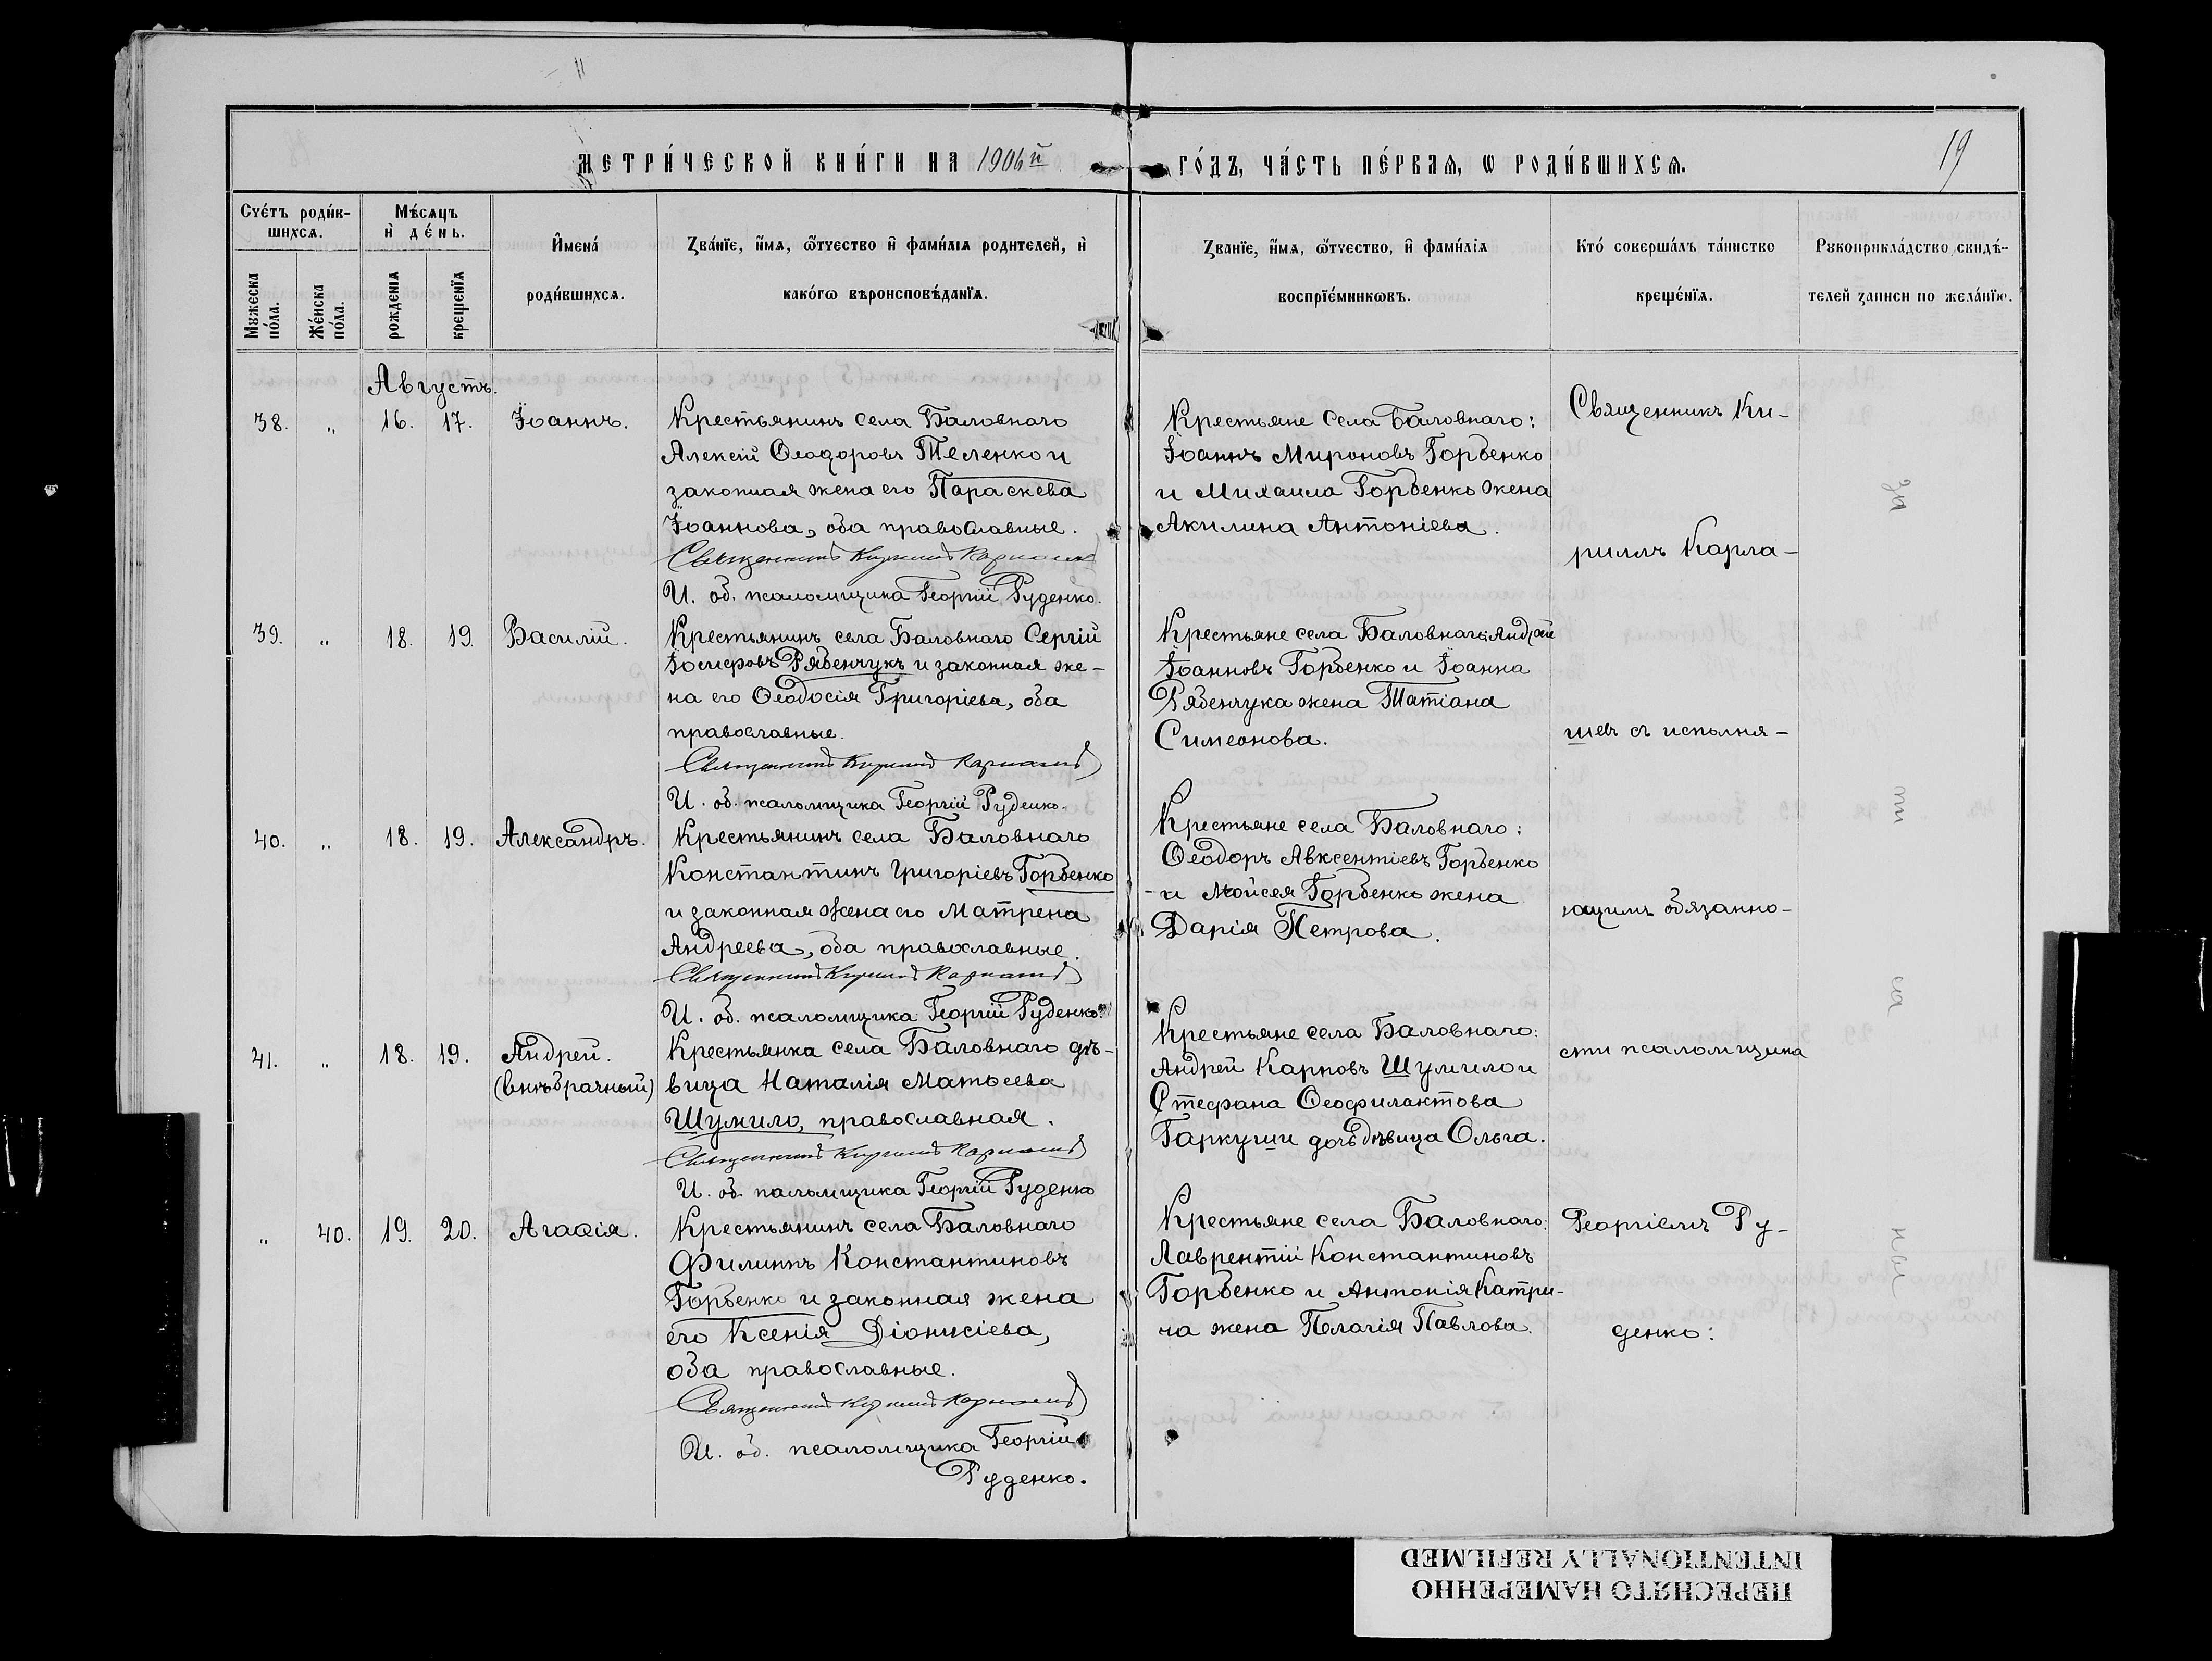 МЕТРИ́ЧЕСКОЙ КНИ́ГИ НА 1906й ГО́ДЪ, ЧА́СТЬ ПЕ́РВАЯ, Ѡ РОДИ́ВШИХСѦ.
19
Сче́тъ роди́в-
шихсѧ.
Мѣ́сѧцъ
и҆ де́нь.
Мꙋжеска по́ла.
Же́нска по́ла.
рожденїѧ
крещенїѧ
И҆мена́
роди́вшихсѧ.
Зва́нїе, и҆́мѧ, ѻ҆́тчество и҆ фами́лїѧ родителей, и҆
како́гѡ вѣроисповѣ́данїѧ.
Зва́нїе, и҆́мѧ, ѻ҆́тчество, и҆ фами́лїѧ
воспрїе́мникѡвъ.
Кто́ соверша́лъ та́инство
креще́нїѧ.
Рꙋкоприкла́дство свидѣ́-
телей записи по жела́нїю.
Августъ.
38. „ 16. 17. Іоаннъ.
Крестьянинъ села Баловнаго
Алексій Ѳеодоровъ Теленко и
законная жена его Параскева
Іоаннова, оба православные.
Священникъ Кириллъ Карлашевъ
И. об. псаломщика Георгій Руденко.
Крестьяне села Баловнаго:
Іоаннъ Мироновъ Горбенко
и Михаила Горбенко жена
Акилина Антоніева.
39. „ 18. 19. Василій.
Крестьянинъ села Баловнаго Сергій
Іосифовъ Рябенчукъ и законная же-
на его Ѳеодосія Григоріева, оба
православные.
Священникъ Кириллъ Карлашевъ
И. об. псаломщика Георгій Руденко.
Крестьяне села Баловнаго: Андрей
Іоанновъ Горбенко и Іоанна
Рябенчука жена Татіана
Симеонова.
40. „ 18. 19. Александръ.
Крестьянинъ села Баловнаго
Константинъ Григоріевъ Горбенко
и законная жена его Матрена
Андреева, оба православные.
Священникъ Кириллъ Карлашевъ
И. об. псаломщика Георгій Руденко.
Крестьяне села Баловнаго:
Ѳеодоръ Авксентіевъ Горбенко
и Мойсея Горбенко жена
Дарія Петрова.
41. „ 18. 19. Андрей.
(внѣбрачный)
Крестьянка села Баловнаго дѣ-
вица Наталія Матѳеева
Шумило, православная.
Священникъ Кириллъ Карлашевъ
И. об. псаломщика Георгій Руденко
Крестьяне села Баловнаго:
Андрей Карповъ Шумило и
Стефана Ѳеофилактова
Гаркуши дочь дѣвица Ольга.
„ 40. 19. 20. Агаѳія.
Крестьянинъ села Баловнаго
Филиппъ Константиновъ
Горбенко и законная жена
его Ксенія Діонисіева,
оба православные.
Священникъ Кириллъ Карлашевъ
И. об. псаломщика Георгій
Руденко.
Крестьяне села Баловнаго:
Лаврентій Константиновъ
Горбенко и Антонія Катри-
ча жена Пелагія Павлова.
Священникъ Ки-
риллъ Карла-
шевъ съ исполня-
ющимъ обязанно-
сти псаломщика
Георгіемъ Ру-
денко:
ПЕРЕСНЯТО НАМЕРЕННО
INTENTIONALLY REFILMED